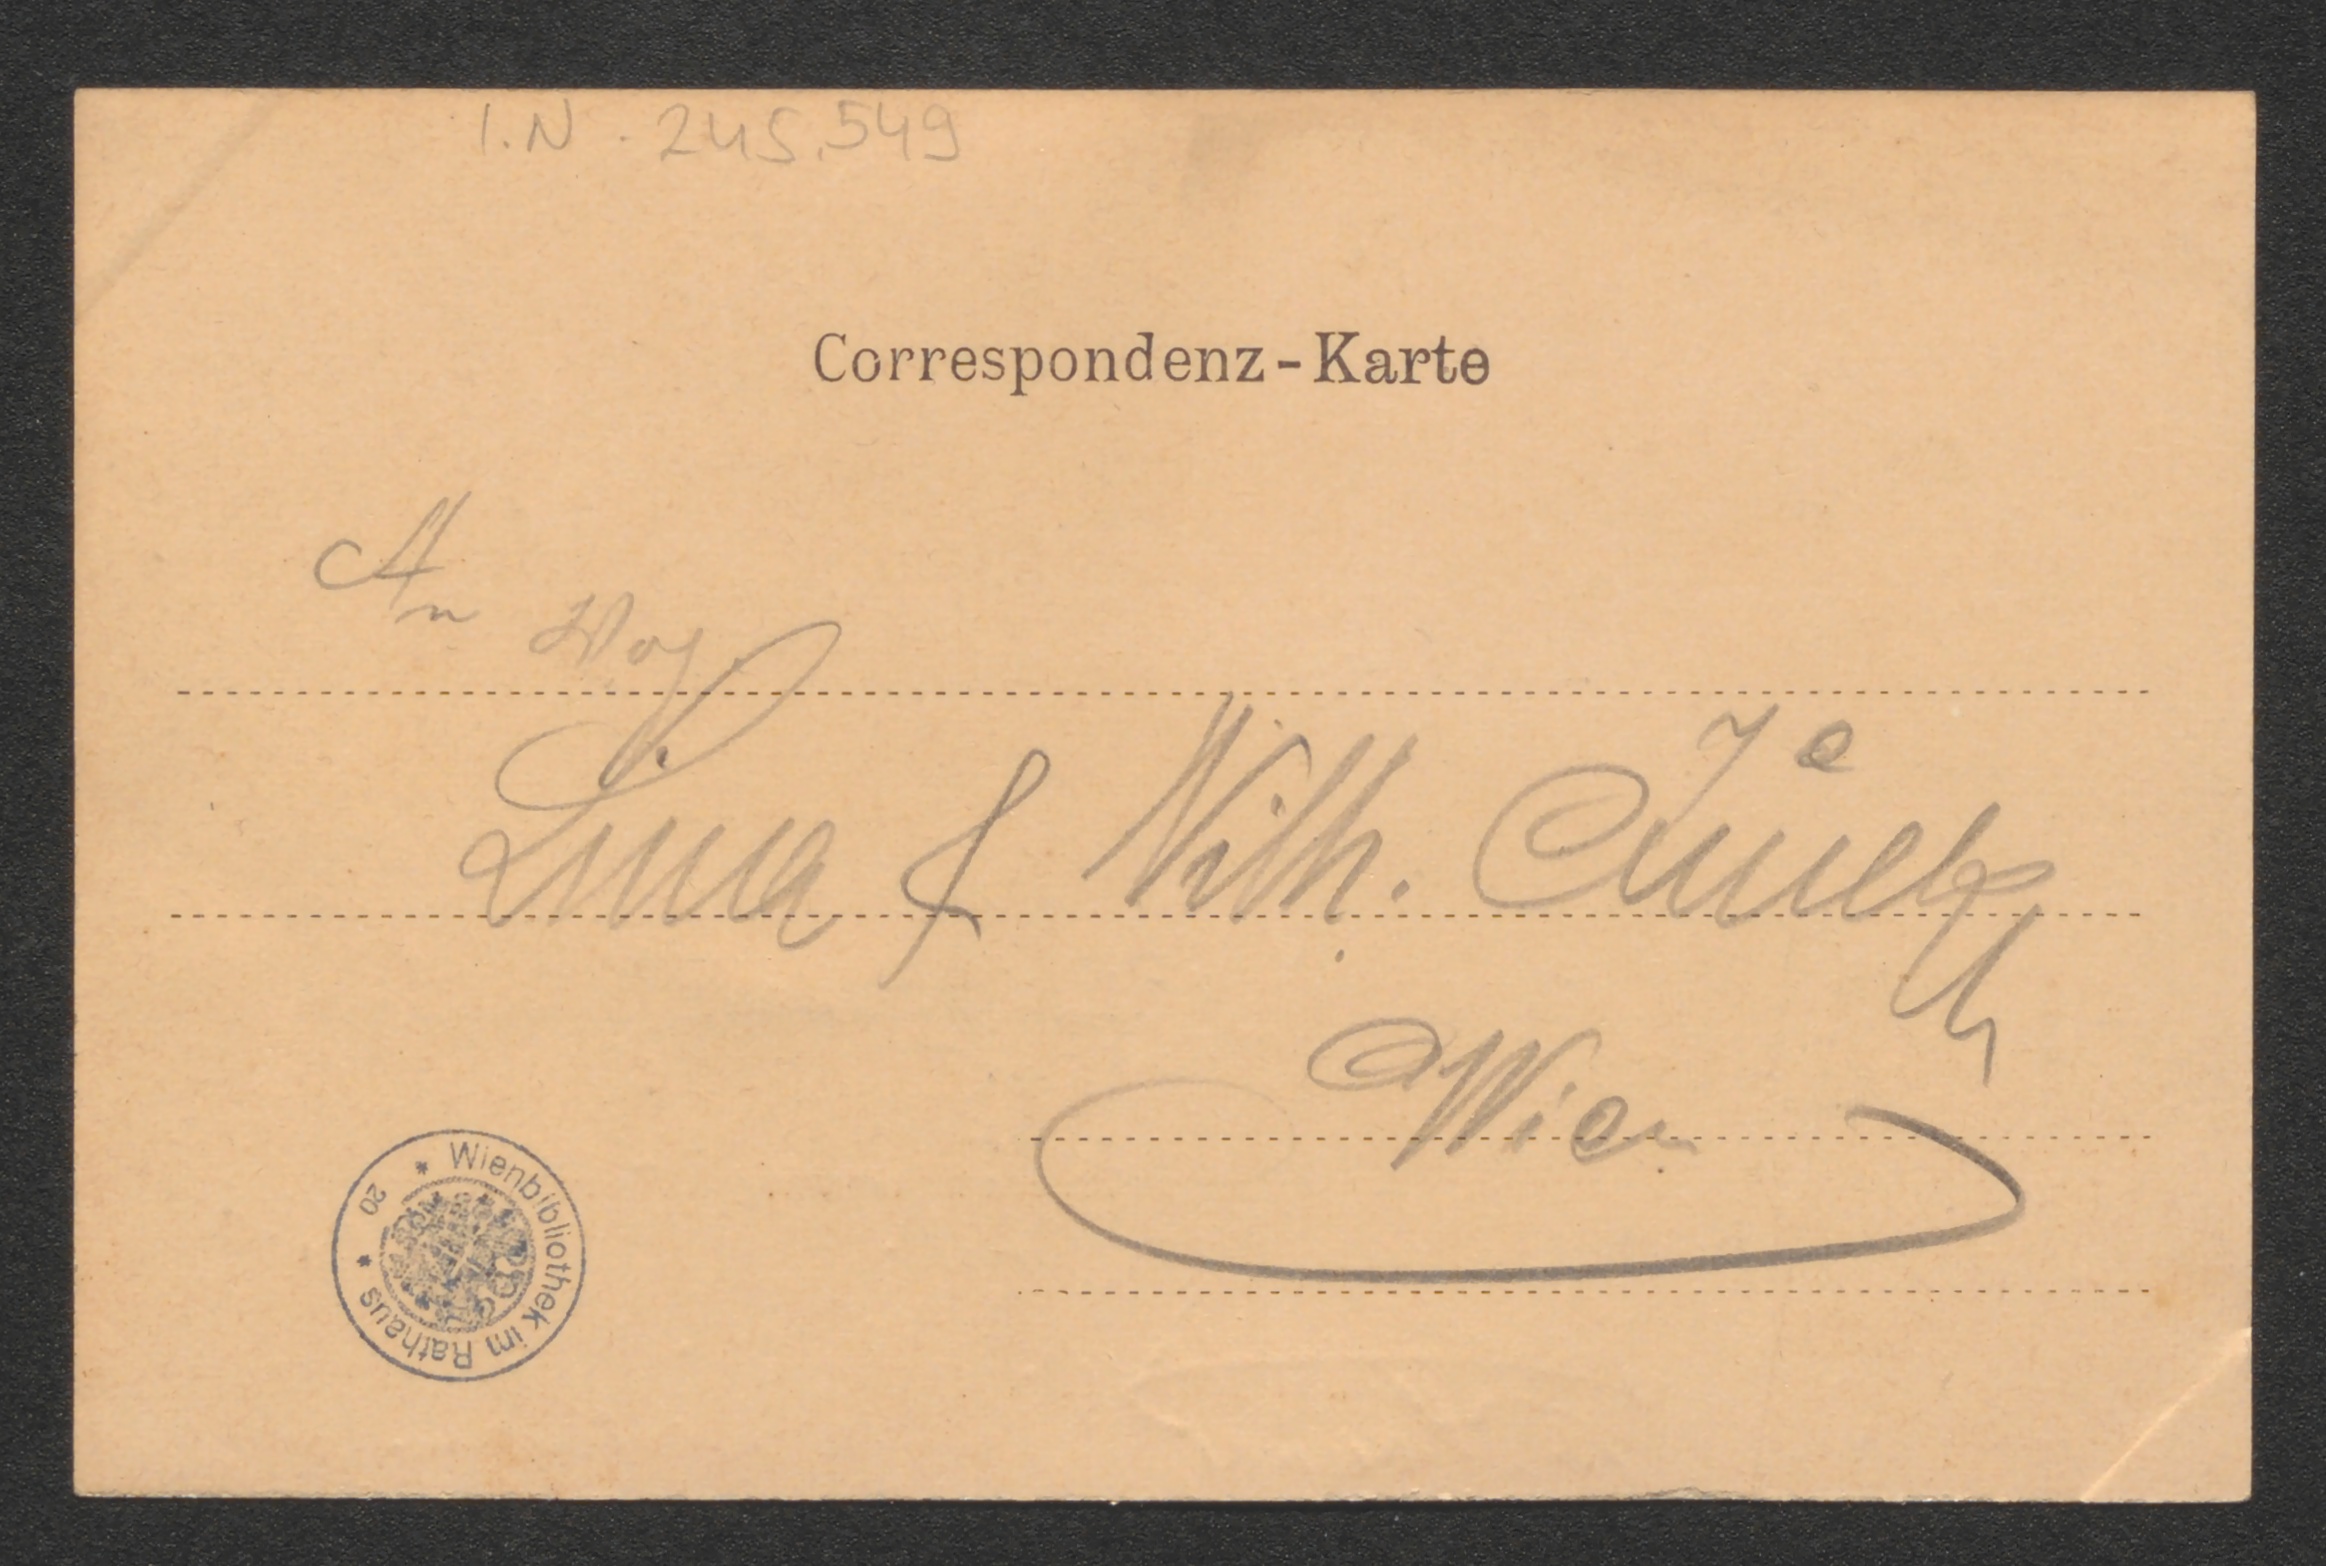 I.N. 245.549
Correspondenz-Karte
An
Lina & Wilh.
Wien
* Wienbibliothek im Rathaus * 20